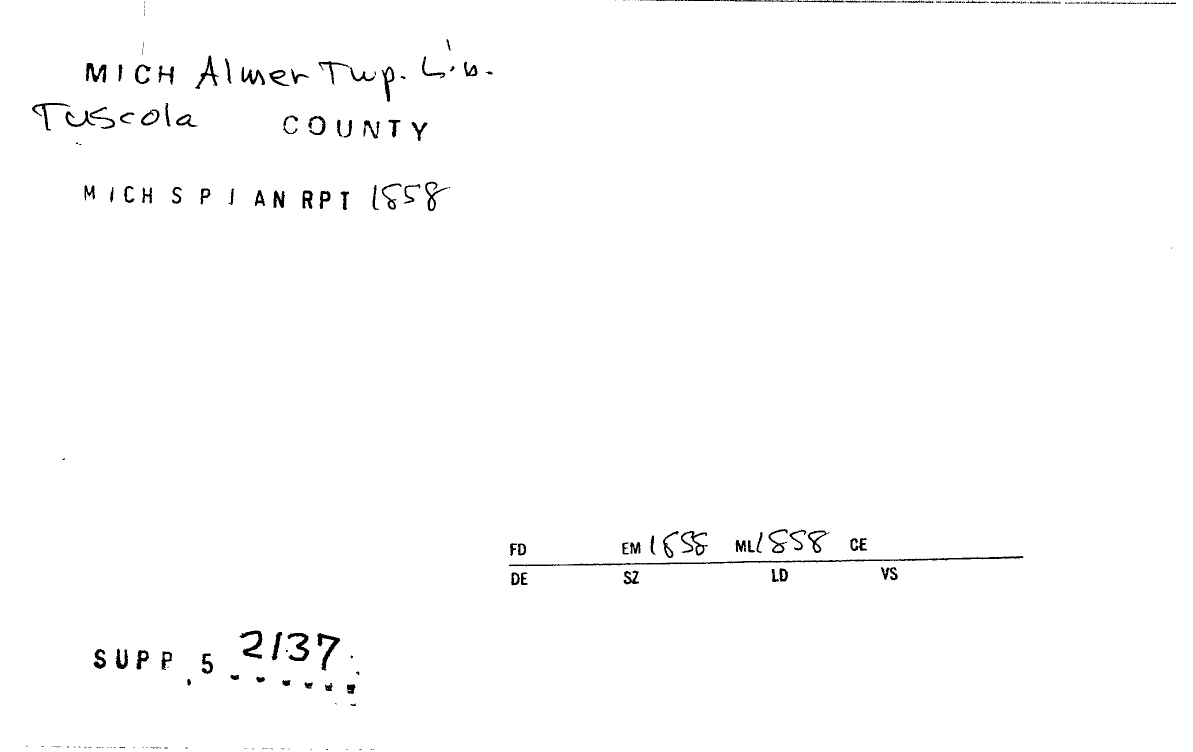 MICH Almer Twp. Lib.
Tuscola COUNTY
MICH S P I AN RPT 1858
FD EM 1858 ML 1858 CE
DE SZ LD VS
SUPP. 5 2137